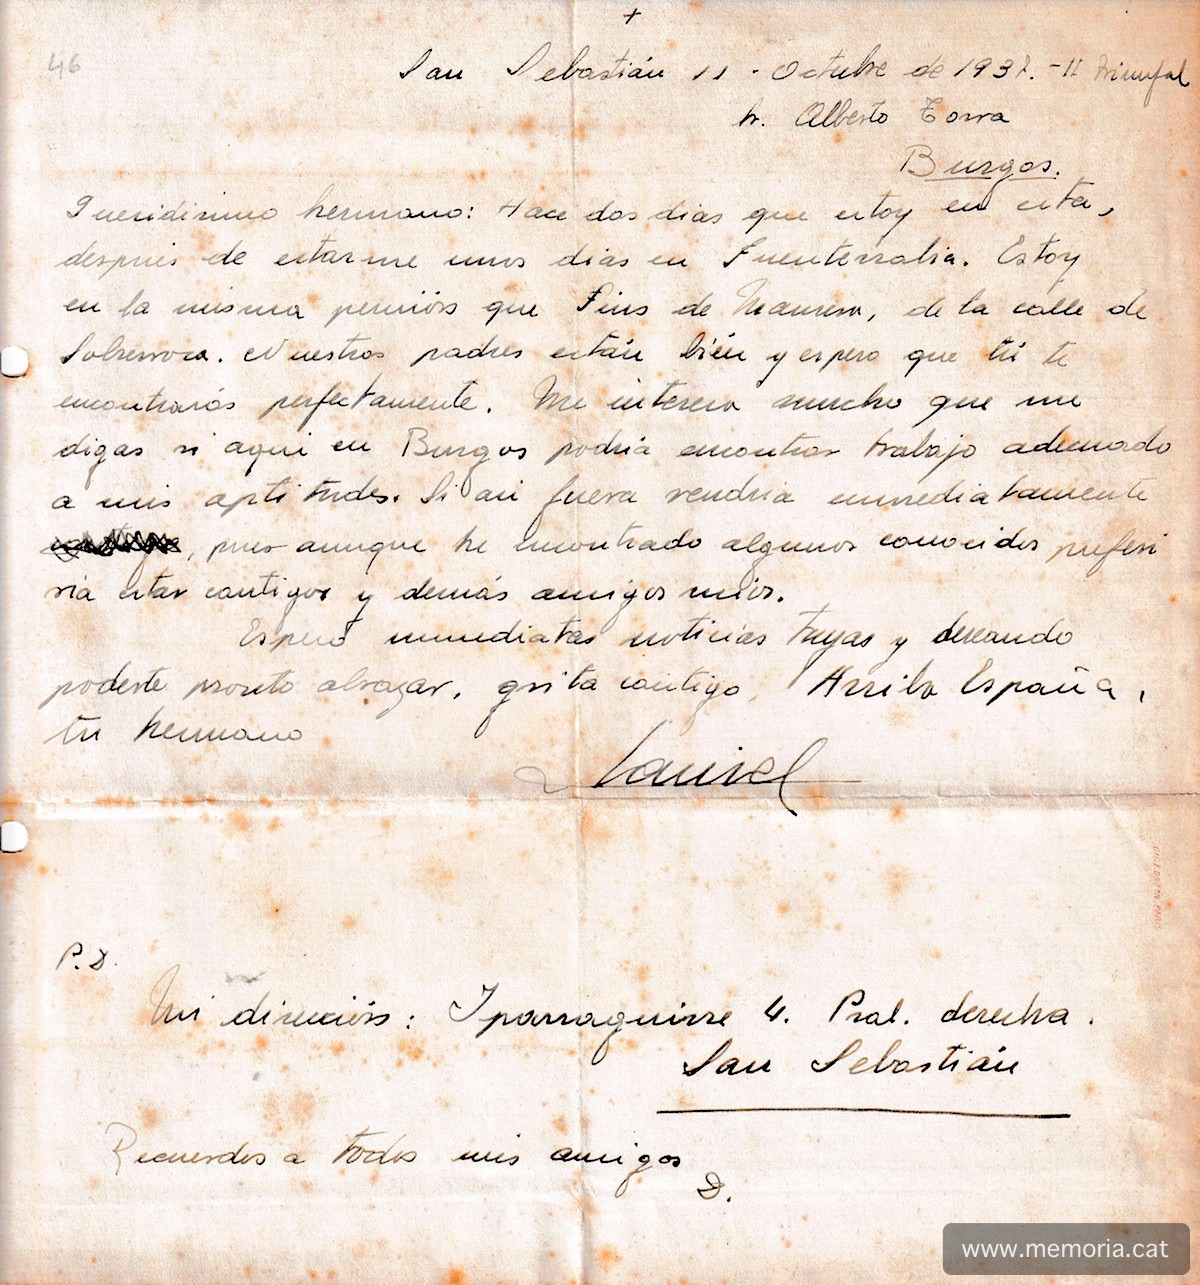 +
46
San Sebastián 11 - Octubre de 1937. - II triunfal
Sr. Alberto Torra
Burgos.
Queridisimo hermano: Hace dos dias que estoy en esta,
después de estarme unos dias en Fuenterrabia. Estoy
en la misma pensión que Pius de Manresa, de la calle de
Sobrerroca. Nuestros padres están bién y espero que tú te
encontrarás perfectamente. Me interesa mucho que me
digas si aqui en Burgos podria encontrar trabajo adecuado
a mis aptitudes. Si asi fuera vendria immediatamente
, pues aunque he encontrado algunos conocidos preferi
ria estar contigo y demás amigos mios.
Espero immediatas noticias tuyas y deseando
poderte pronto abrazar, grita contigo, Arriba España,
tu hermano
P.D.
Mi dirección: Yparraguirre 4. Pral. derecha.
San Sebastián
Recuerdos a todos mis amigos
D.
www.memoria.cat